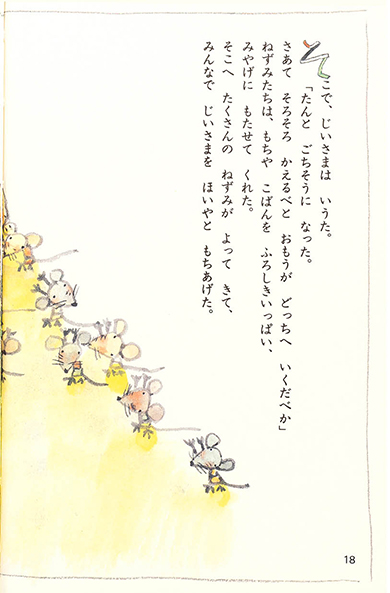 そこで、じいさまは いうた。
「たんと ごちそうに なった。
さあて そろそろ かえるべと おもうが どっちへ いくだべか」
ねずみたちは、もちや こばんを ふろしきいっぱい、
みやげに もたせて くれた。
そこへ たくさんの ねずみが よって きて、
みんなで じいさまを ほいやと もちあげた。
18